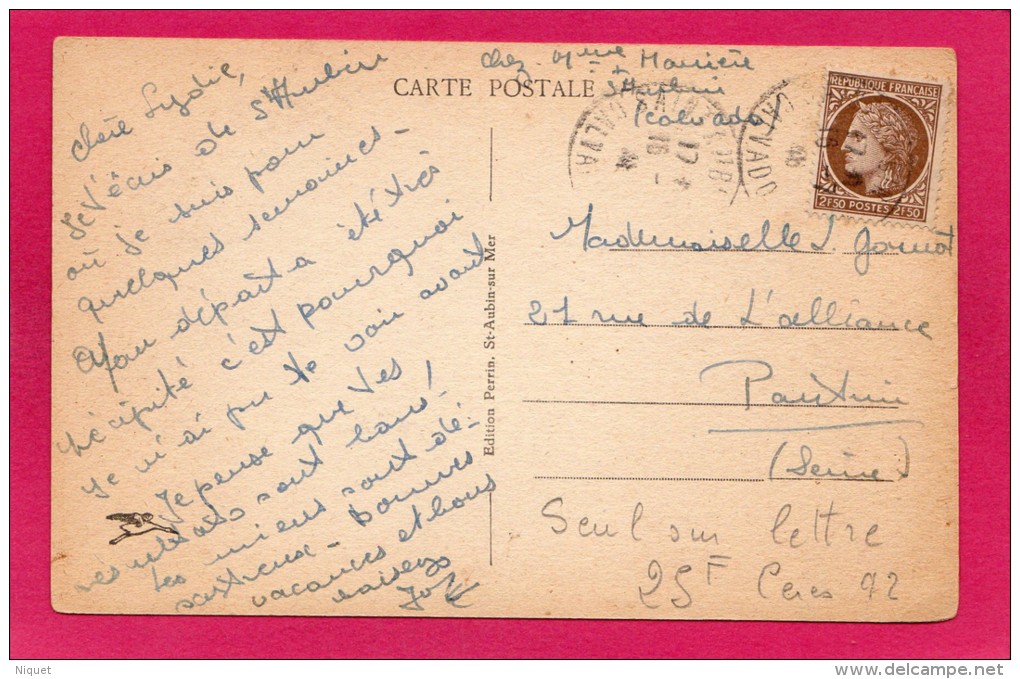 CARTE POSTALE
chez Mme
St Aubin
Calvados
REPUBLIQUE FRANÇAISE
2F50 POSTES 2F50
CALVADOS
17
16
Chère Lydie,
Je t'écris de St Aubin
où je suis pour
quelques semaines -
Mon départ a été très
précipité c'est pourquoi
je n'ai pu te voir avant
Je pense que tes
résultats sont bons !
les miens sont dé-
sastreux - bonnes
vacances et bons
baisers
Edition Perrin, St-Aubin-sur Mer
Mademoiselle L.
21 rue de L'alliance
Pantin
(Seine)
Seul sur lettre
25F Ceres 92
Niquet
delcampe.net